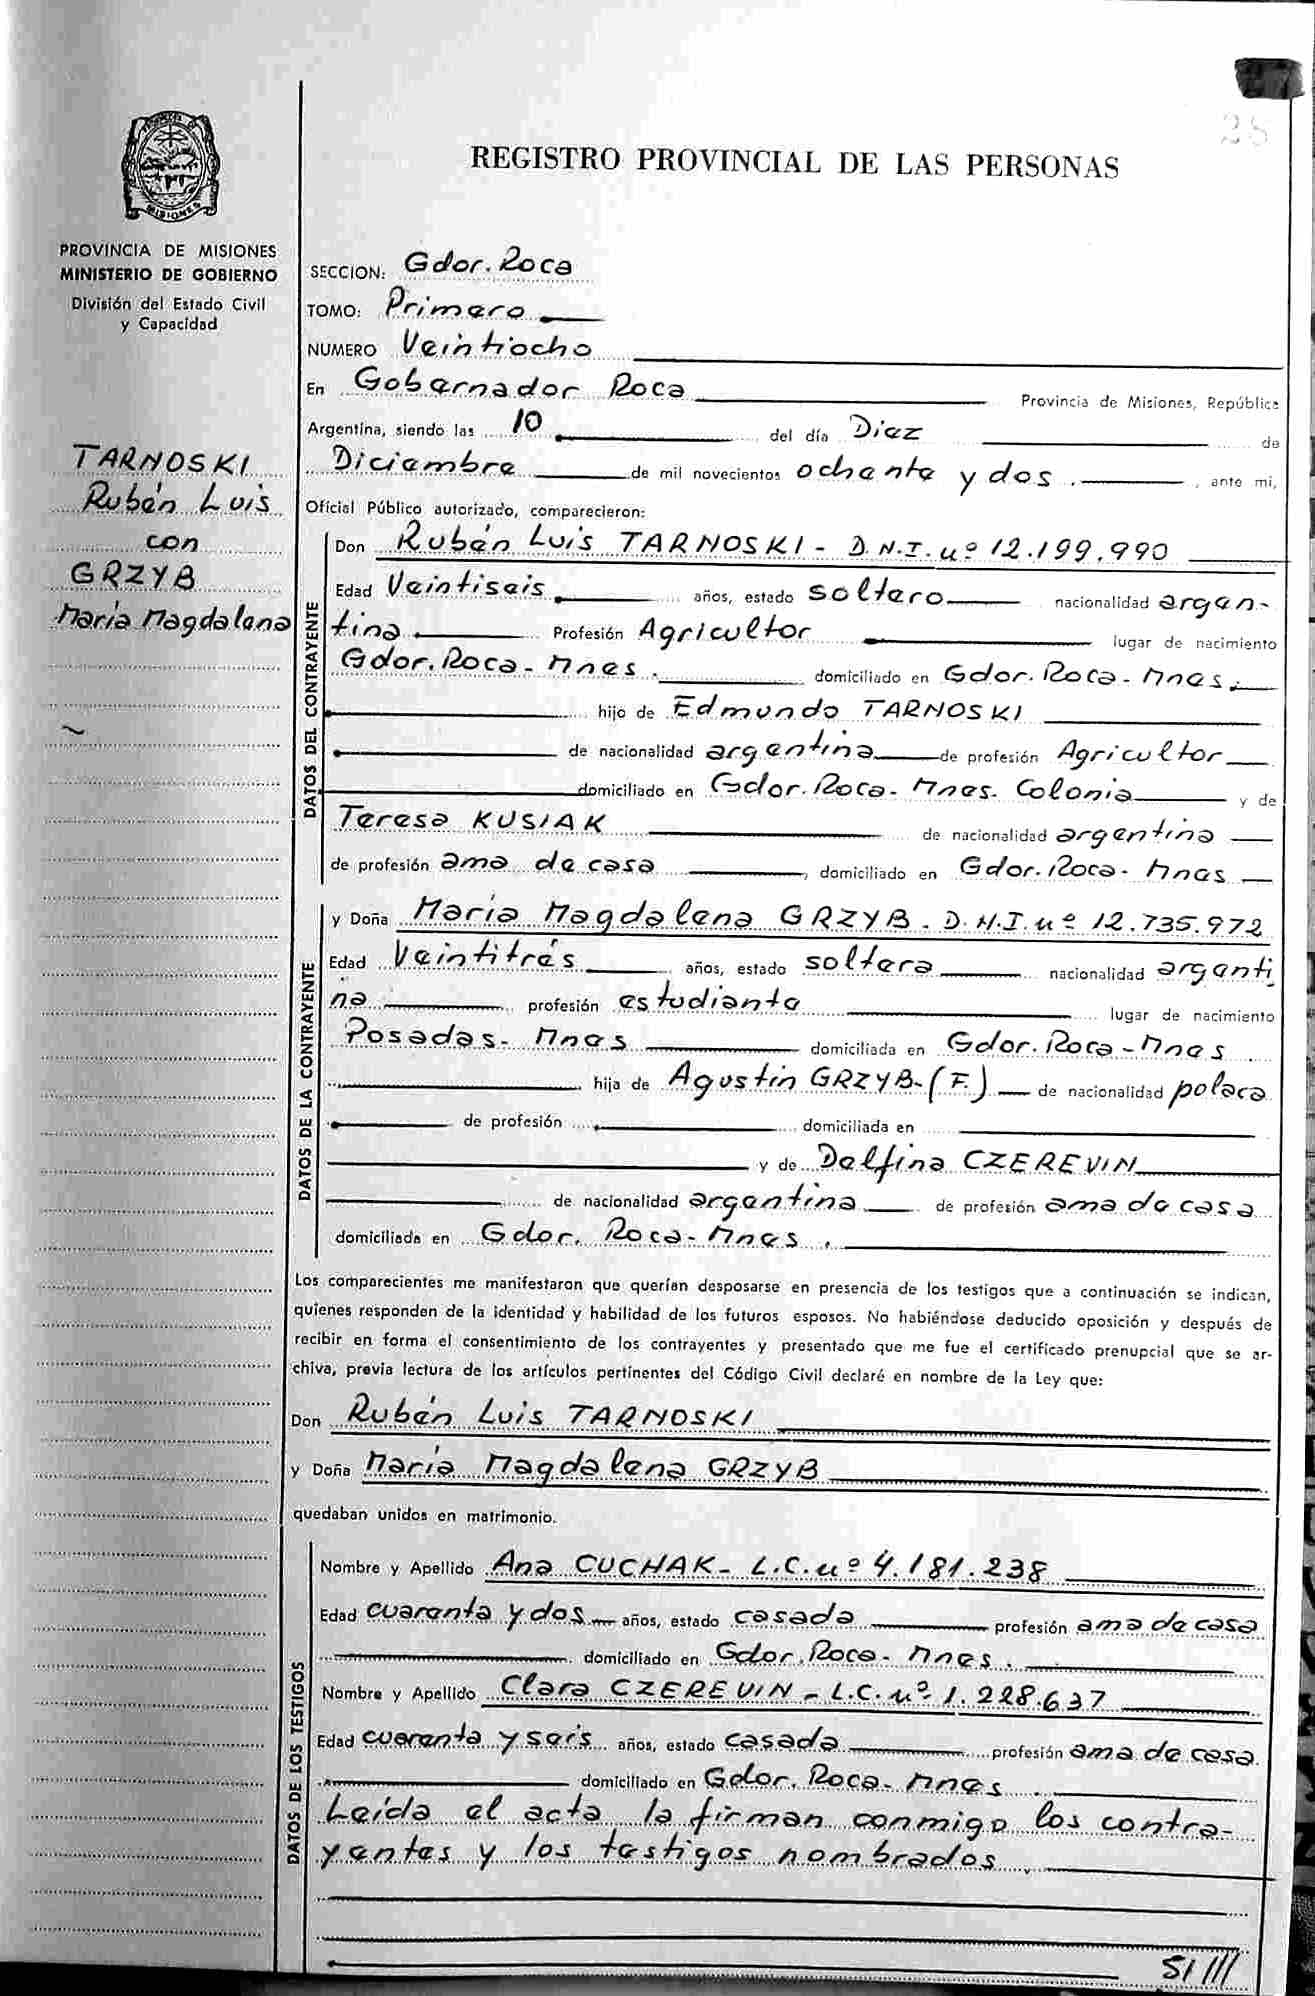 28
REGISTRO PROVINCIAL DE LAS PERSONAS
MISIONES
PROVINCIA DE MISIONES
MINISTERIO DE GOBIERNO
División del Estado Civil
y Capacidad
TARNOSKI
Rubén Luis
con
GRZYB
María Magdalena
SECCION: Gdor. Roca
TOMO: Primero
NUMERO Veintiocho
En Gobernador Roca Provincia de Misiones, República
Argentina, siendo las 10 del día Diez de
Diciembre de mil novecientos ochenta y dos. , ante mi,
Oficial Público autorizado, comparecieron:
DATOS DEL CONTRAYENTE
Don Rubén Luis TARNOSKI - D.N.I. nº 12.199.990
Edad Veintiseis años, estado soltero nacionalidad argen-
tina. Profesión Agricultor lugar de nacimiento
Gdor. Roca - Mnes. domiciliado en Gdor. Roca - Mnes.
hijo de Edmundo TARNOSKI
de nacionalidad argentina de profesión Agricultor
domiciliado en Gdor. Roca - Mnes. Colonia y de
Teresa KUSIAK de nacionalidad argentina
de profesión ama de casa , domiciliado en Gdor. Roca - Mnes
DATOS DE LA CONTRAYENTE
y Doña María Magdalena GRZYB. D.N.I. nº 12.735.972
Edad Veintitrés años, estado soltera nacionalidad argenti
na profesión estudiante lugar de nacimiento
Posadas - Mnes domiciliada en Gdor. Roca - Mnes.
hija de Agustín GRZYB - (F.) de nacionalidad polaca
de profesión domiciliada en
y de Delfina CZEREVIN
de nacionalidad argentina de profesión ama de casa
domiciliada en Gdor. Roca - Mnes.
Los comparecientes me manifestaron que querían desposarse en presencia de los testigos que a continuación se indican,
quienes responden de la identidad y habilidad de los futuros esposos. No habiéndose deducido oposición y después de
recibir en forma el consentimiento de los contrayentes y presentado que me fue el certificado prenupcial que se ar-
chiva, previa lectura de los artículos pertinentes del Código Civil declaré en nombre de la Ley que:
Don Rubén Luis TARNOSKI
y Doña María Magdalena GRZYB
quedaban unidos en matrimonio.
DATOS DE LOS TESTIGOS
Nombre y Apellido Ana CUCHAK - L.C. nº 4.181.238
Edad cuarenta y dos años, estado casada profesión ama de casa
domiciliado en Gdor. Roca - Mnes.
Nombre y Apellido Clara CZEREVIN - L.C. nº 1.228.637
Edad cuarenta y seis años, estado casada profesión ama de casa
domiciliado en Gdor. Roca - Mnes.
Leída el acta la firman conmigo los contra-
yentes y los testigos nombrados.